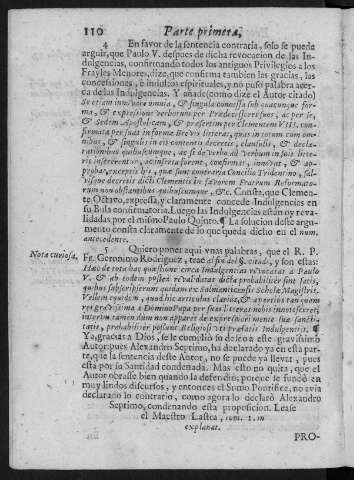 110
Parte primera,
4 En favor de la sentencia contraria, solo se puede
arguir, que Paulo V. despues de dicha revocacion de las In-
dulgencias, confirmando todos los antiguos Privilegios a los
Frayles Menores, dize, que confirma tambien las gracias, las
concessiones, è indultos espirituales, y no puso palabra acer-
ca de las Indulgencias. Y añade (como dize el Autor citado)
Se etiam innovare omnia, & singula concessa sub quacunque for-
ma, & expressione verborum per Prædecessores suos, ac per se,
& Sedem Apostolicam, & præsertim per Clementem VIII. con-
firmata per suas in forma Brevis litteras, quas in totum cum om-
nibus, & singulis in eis contentis decretis, clausulis, & decla-
rationibus quibuscunque, ac si de verbo ad verbum in suis litte-
ris insererentur, ac inserta forent, confirmat, innovat, & ap-
probat, exceptis ijs, quæ sunt contraria Concilio Tridentino, sal-
visque decretis dicti Clementis in favorem Fratrum Reformato-
rum non obstantibus quibuscumque, &c. Consta, que Clemen-
te Octavo, expressa, y claramente concede Indulgencias en
su Bula confirmatoria. Luego las Indulgencias estàn oy reva-
lidadas por el mismo Paulo Quinto. ¶ La solucion deste argu-
mento consta claramente de lo que queda dicho en el num.
antecedente.
Nota curiosa.
5 Quiero poner aqui vnas palabras, que el R. P.
Fr. Geronimo Rodriguez, trae al fin del §. citado, y son estas:
Hæc de tota hac quæstione circa Indulgencias revocatas a Paulo
V. & ab eodem postea revalidatas dicta probabiliter sint satis,
quibus subscripserunt quidam ex Salmanticensis Scholæ Magistris.
Vellem equidem, quod hic articulus clarius, & apertius tan quam
res gravissima à Domino Papa per suas litteras nobis innotesceret;
interim tamen dum non apparet de expressiori mente suæ sancti-
tatis, probabiliter possunt Religiosi vti præfatis Indulgentijs. ¶
Ya, gracias à Dios, se le cumpliò su deseo a este gravissimo
Autor: pues Alexandro Septimo, hà declarado ya en esta par-
te, que la sentencia deste Autor, no se puede ya llevar, pues
està por su Santidad condenada. Mas esto no quita, que el
Autor obrasse bien quando la defendiò; porque se fundò en
muy lindos discursos, y entonces el Sumo Pontifice, no avia
declarado lo contrario, como agora lo declarò Alexandro
Septimo, condenando esta proposicion. Lease
el Maestro Lastea, tom. 1. in
explanat.
PRO-